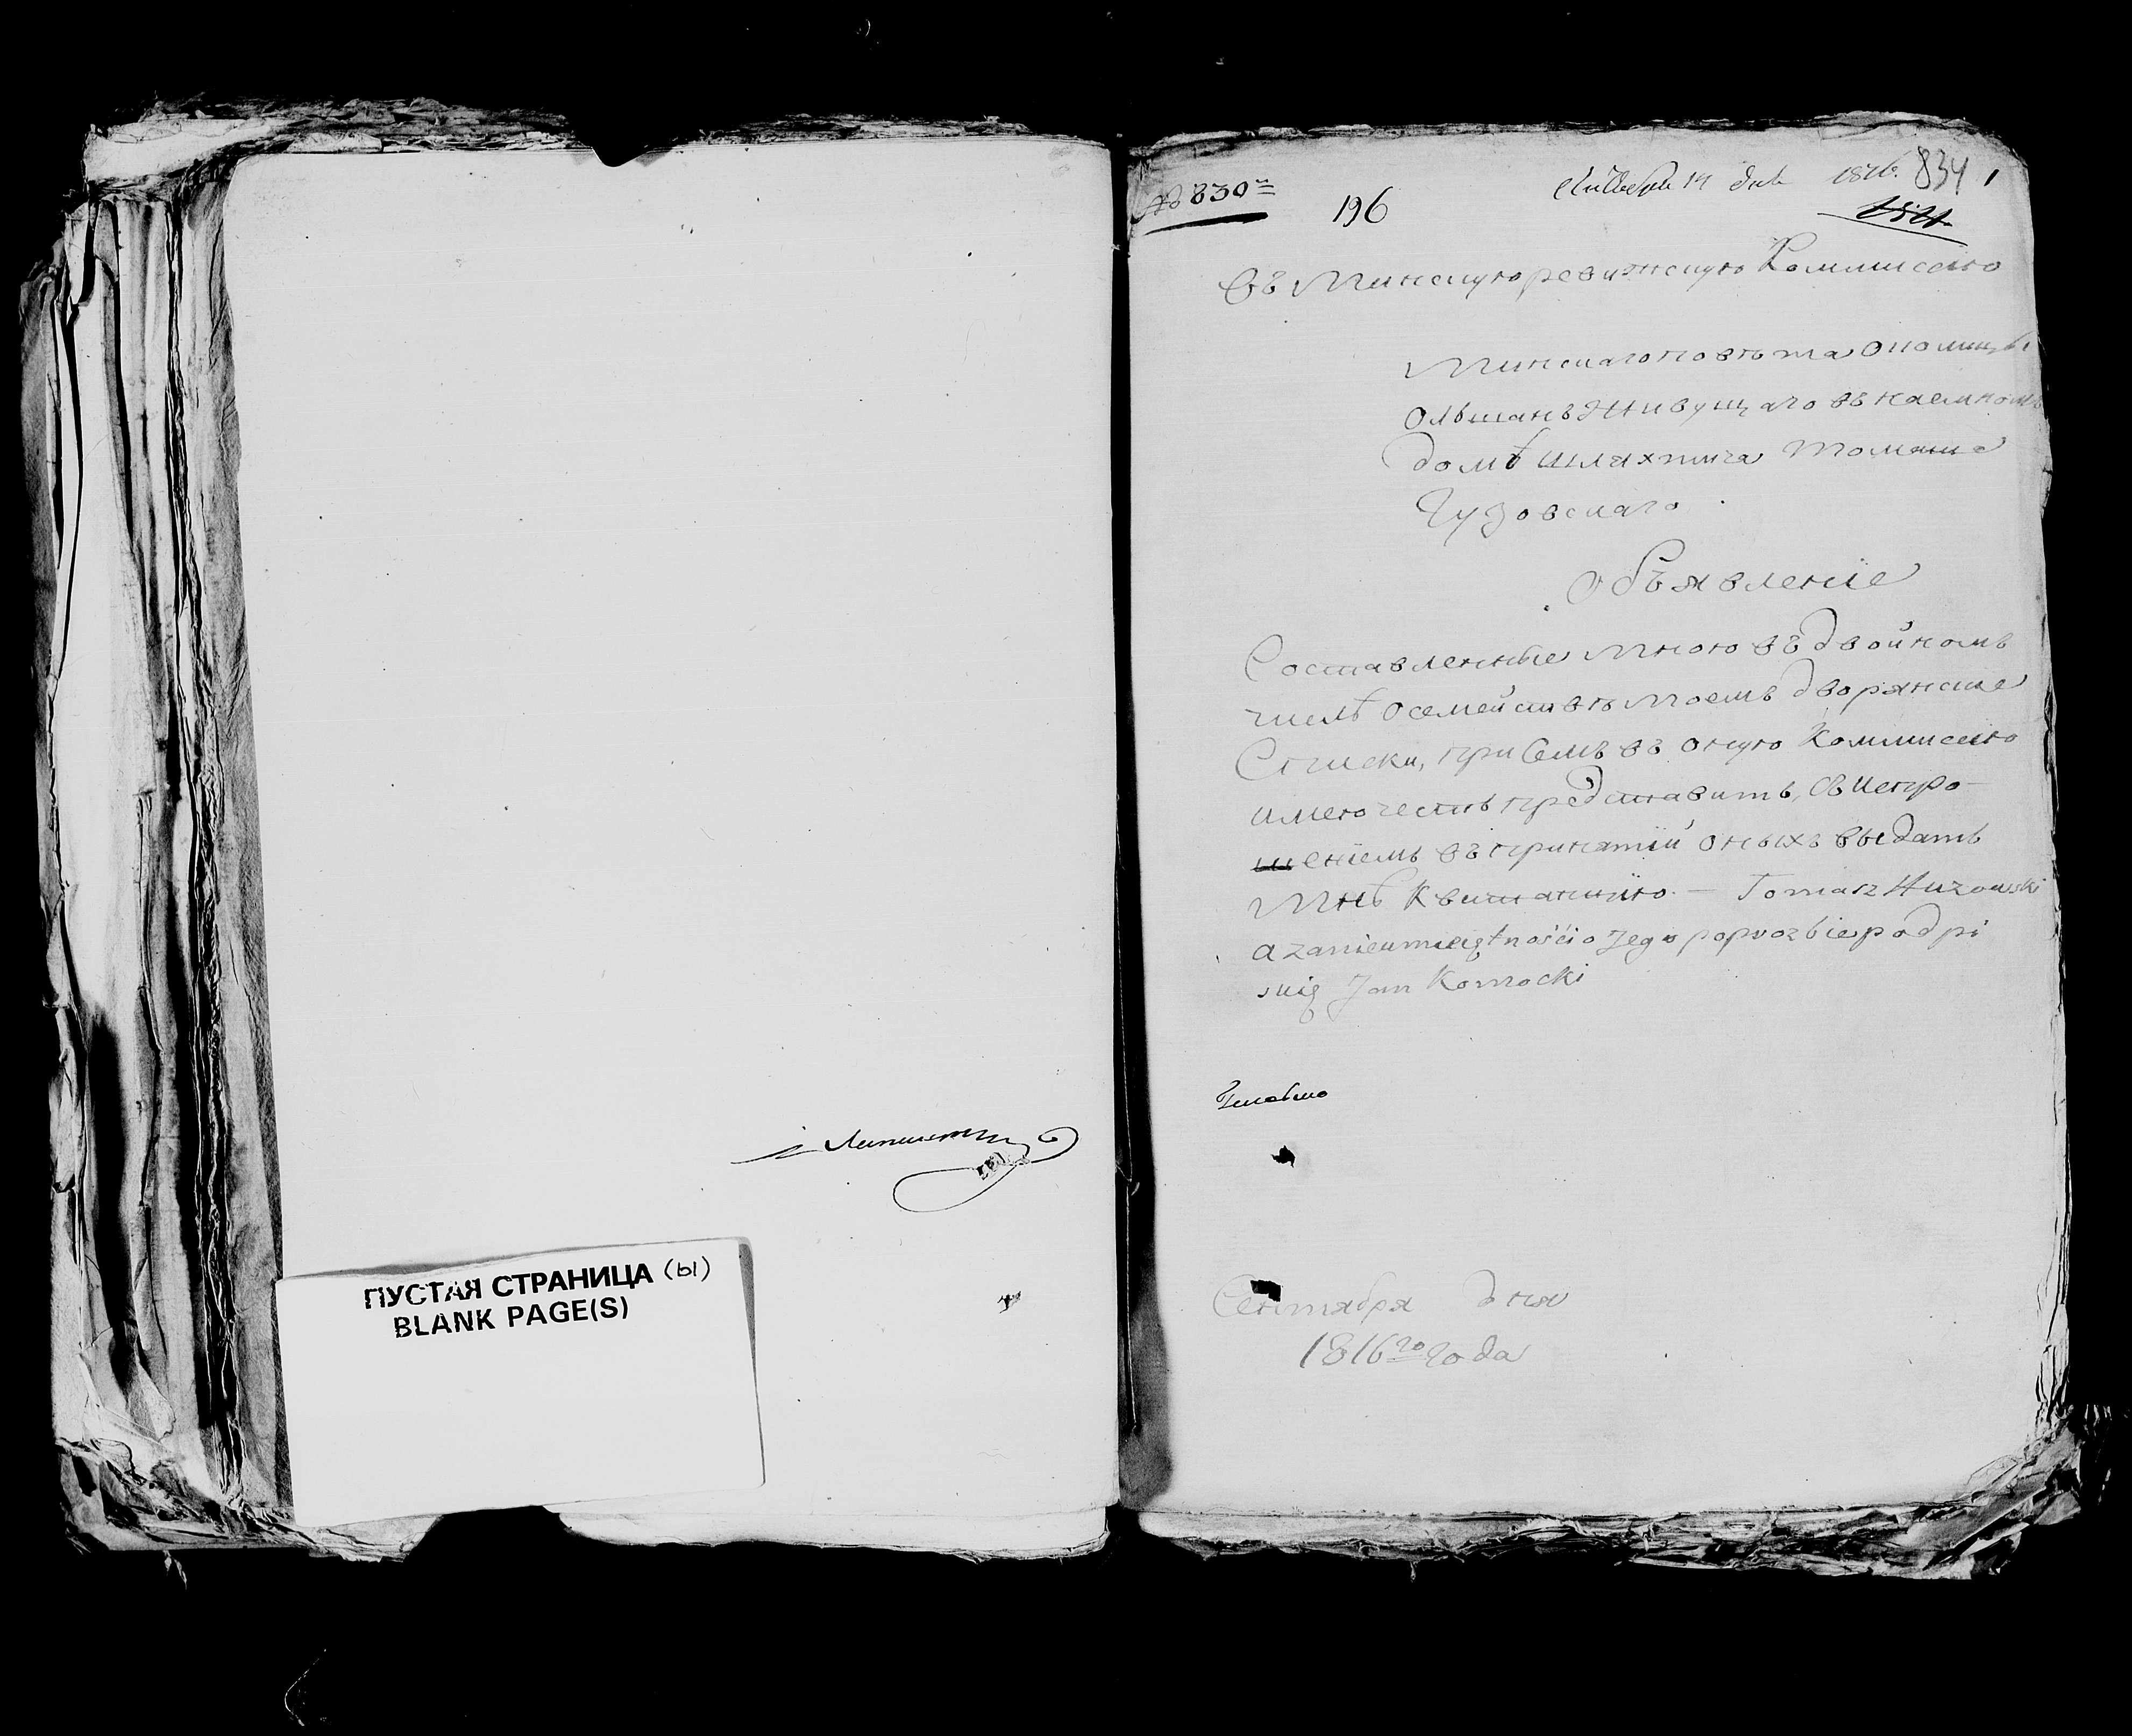 ПУСТАЯ СТРАНИЦА (ы)
BLANK PAGE(S)
№ 830
196
14 1816. 834
Въ Минскую ревижскую Коммисею
Минскаго повѣта Околицы
Ольшанъ Живущаго въ наемномъ
домѣ шляхтича Томаша
Гузовскаго
Объявленіе
Составленные мною въ двойномъ
числѣ о семействѣ моемъ дворянские
Списки, при семъ въ оную Коммисею
имею честь представить, Съ испро-
шеніемъ въ принятіи оныхъ выдать
мнѣ Квитанцію. — Tomasz Huzowski
a zanieumieiętnośćio Jego popvozbie podpi
suię Jan Kornocki
Сентября дня
1816го года